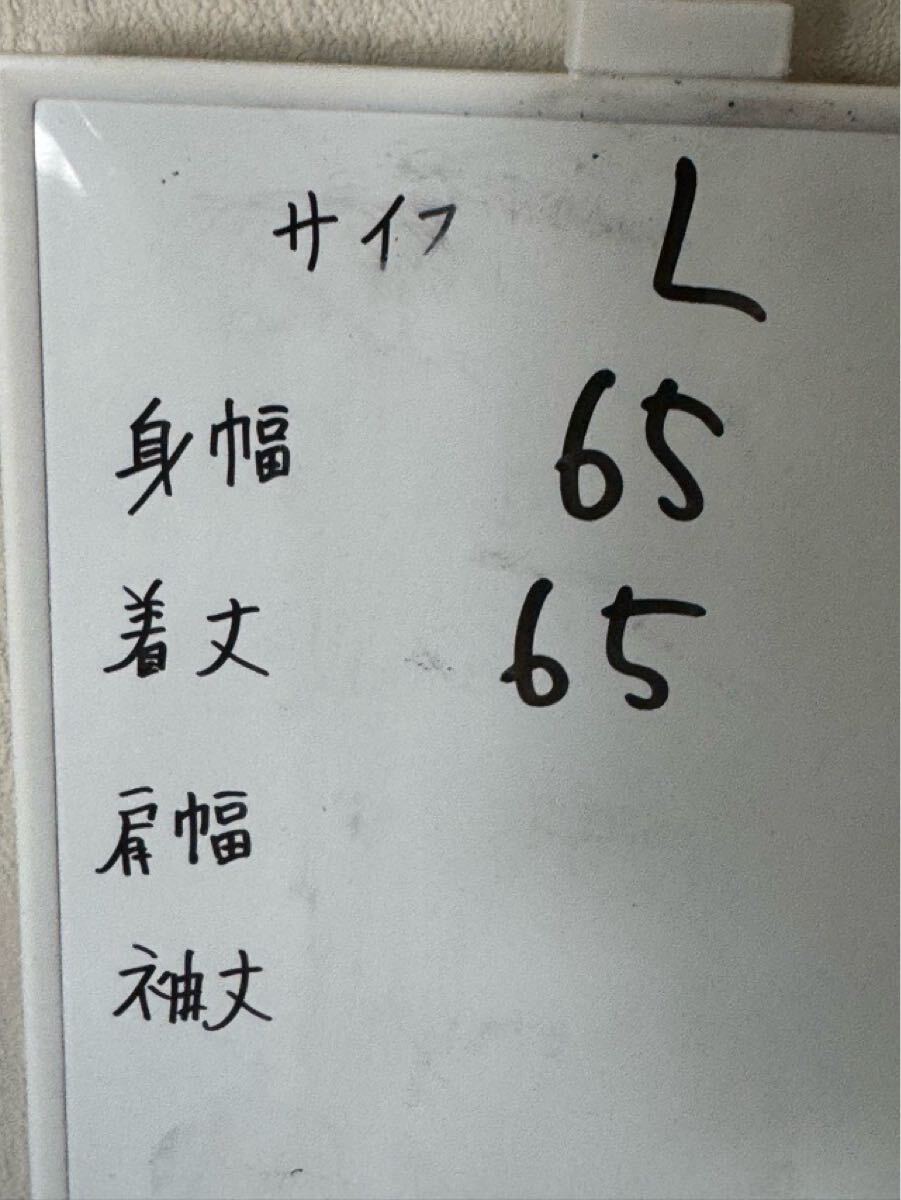 サイフ L
身幅 65
着丈 65
肩幅
袖丈